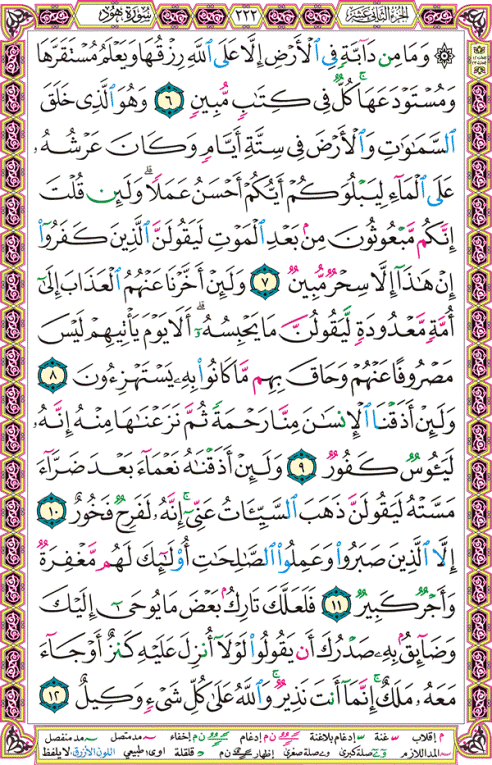 الجزء الثاني عشر ٢٢٢ سورة هود
۞ وَمَا مِن دَآبَّةٍ فِي ٱلْأَرْضِ إِلَّا عَلَى ٱللَّهِ رِزْقُهَا وَيَعْلَمُ مُسْتَقَرَّهَا
وَمُسْتَوْدَعَهَا ۚ كُلٌّ فِي كِتَٰبٍ مُّبِينٍ ٦ وَهُوَ ٱلَّذِي خَلَقَ
ٱلسَّمَٰوَٰتِ وَٱلْأَرْضَ فِي سِتَّةِ أَيَّامٍ وَكَانَ عَرْشُهُۥ
عَلَى ٱلْمَآءِ لِيَبْلُوَكُمْ أَيُّكُمْ أَحْسَنُ عَمَلًا ۗ وَلَئِن قُلْتَ
إِنَّكُم مَّبْعُوثُونَ مِنۢ بَعْدِ ٱلْمَوْتِ لَيَقُولَنَّ ٱلَّذِينَ كَفَرُوٓا۟
إِنْ هَٰذَآ إِلَّا سِحْرٌ مُّبِينٌ ٧ وَلَئِنْ أَخَّرْنَا عَنْهُمُ ٱلْعَذَابَ إِلَىٰٓ
أُمَّةٍ مَّعْدُودَةٍ لَّيَقُولُنَّ مَا يَحْبِسُهُۥٓ ۗ أَلَا يَوْمَ يَأْتِيهِمْ لَيْسَ
مَصْرُوفًا عَنْهُمْ وَحَاقَ بِهِم مَّا كَانُوا۟ بِهِۦ يَسْتَهْزِءُونَ ٨
وَلَئِنْ أَذَقْنَا ٱلْإِنسَٰنَ مِنَّا رَحْمَةً ثُمَّ نَزَعْنَٰهَا مِنْهُ إِنَّهُۥ
لَيَـُٔوسٌ كَفُورٌ ٩ وَلَئِنْ أَذَقْنَٰهُ نَعْمَآءَ بَعْدَ ضَرَّآءَ
مَسَّتْهُ لَيَقُولَنَّ ذَهَبَ ٱلسَّيِّـَٔاتُ عَنِّيٓ ۚ إِنَّهُۥ لَفَرِحٌ فَخُورٌ ١٠
إِلَّا ٱلَّذِينَ صَبَرُوا۟ وَعَمِلُوا۟ ٱلصَّٰلِحَٰتِ أُو۟لَٰٓئِكَ لَهُم مَّغْفِرَةٌ
وَأَجْرٌ كَبِيرٌ ١١ فَلَعَلَّكَ تَارِكٌۢ بَعْضَ مَا يُوحَىٰٓ إِلَيْكَ
وَضَآئِقٌۢ بِهِۦ صَدْرُكَ أَن يَقُولُوا۟ لَوْلَآ أُنزِلَ عَلَيْهِ كَنزٌ أَوْ جَآءَ
مَعَهُۥ مَلَكٌ ۚ إِنَّمَآ أَنتَ نَذِيرٌ ۚ وَٱللَّهُ عَلَىٰ كُلِّ شَيْءٍ وَكِيلٌ ١٢
م إقلاب س غنة س إدغام بلاغنة ن م إدغام ن م إخفاء مد متصل مد منفصل
المد اللازم صلة كبرى صلة صغرى إظهار ن م د قلقلة اوى: طبيعي اللون الأزرق: لا يلفظ